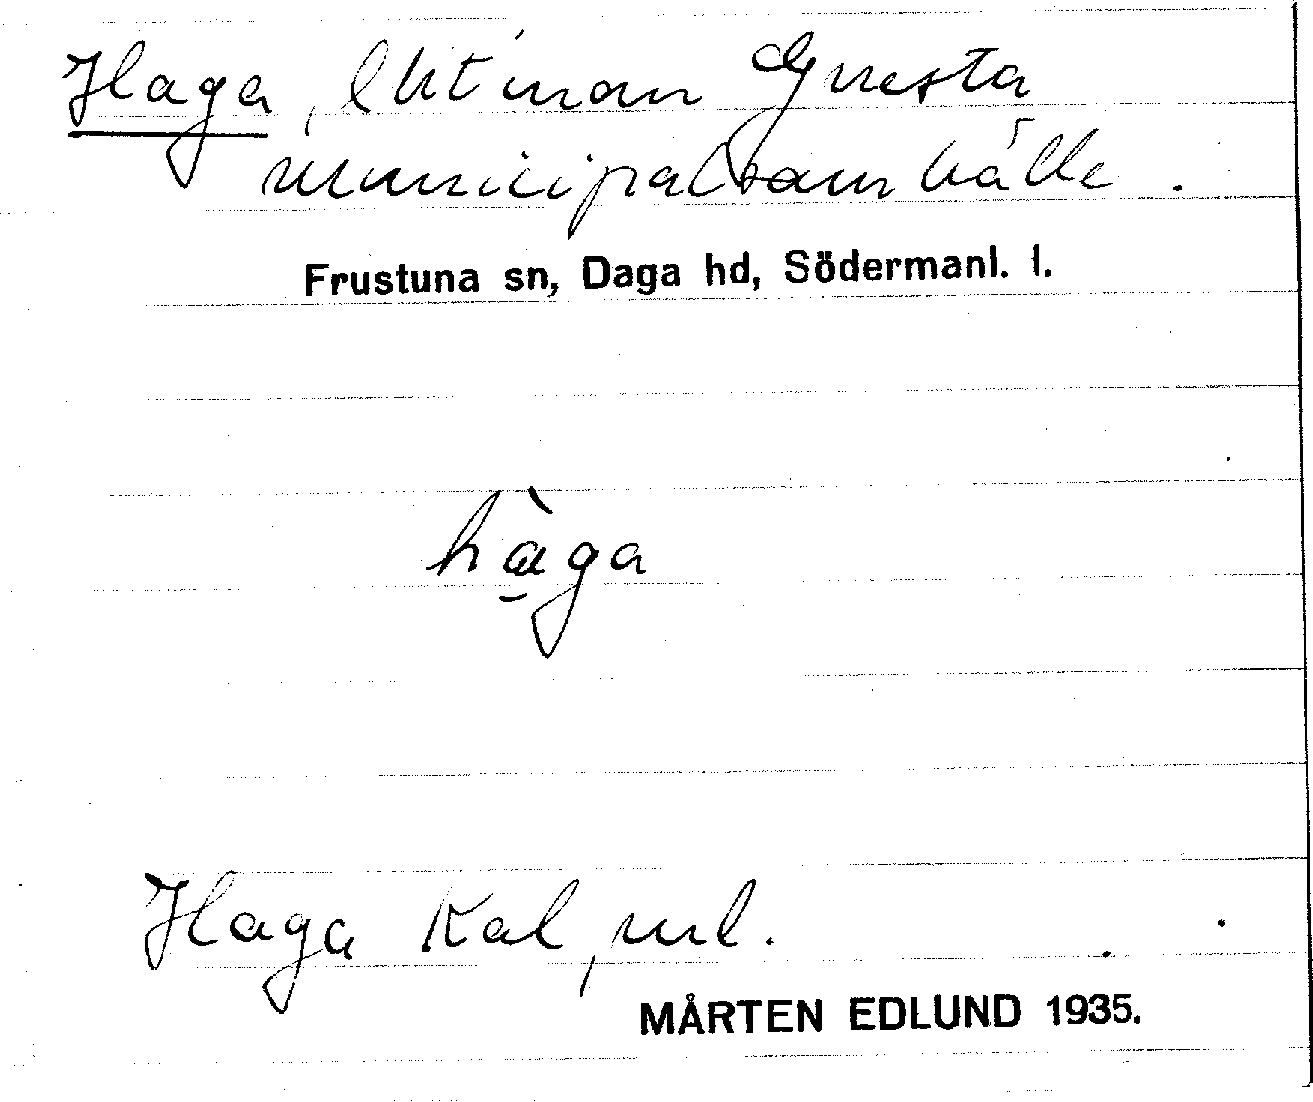 Haga, lht inom Gnesta
municipalsamhälle.
Frustuna sn, Daga hd, Södermanl. l.
hàga
Haga Kal, ml.
MÅRTEN EDLUND 1935.